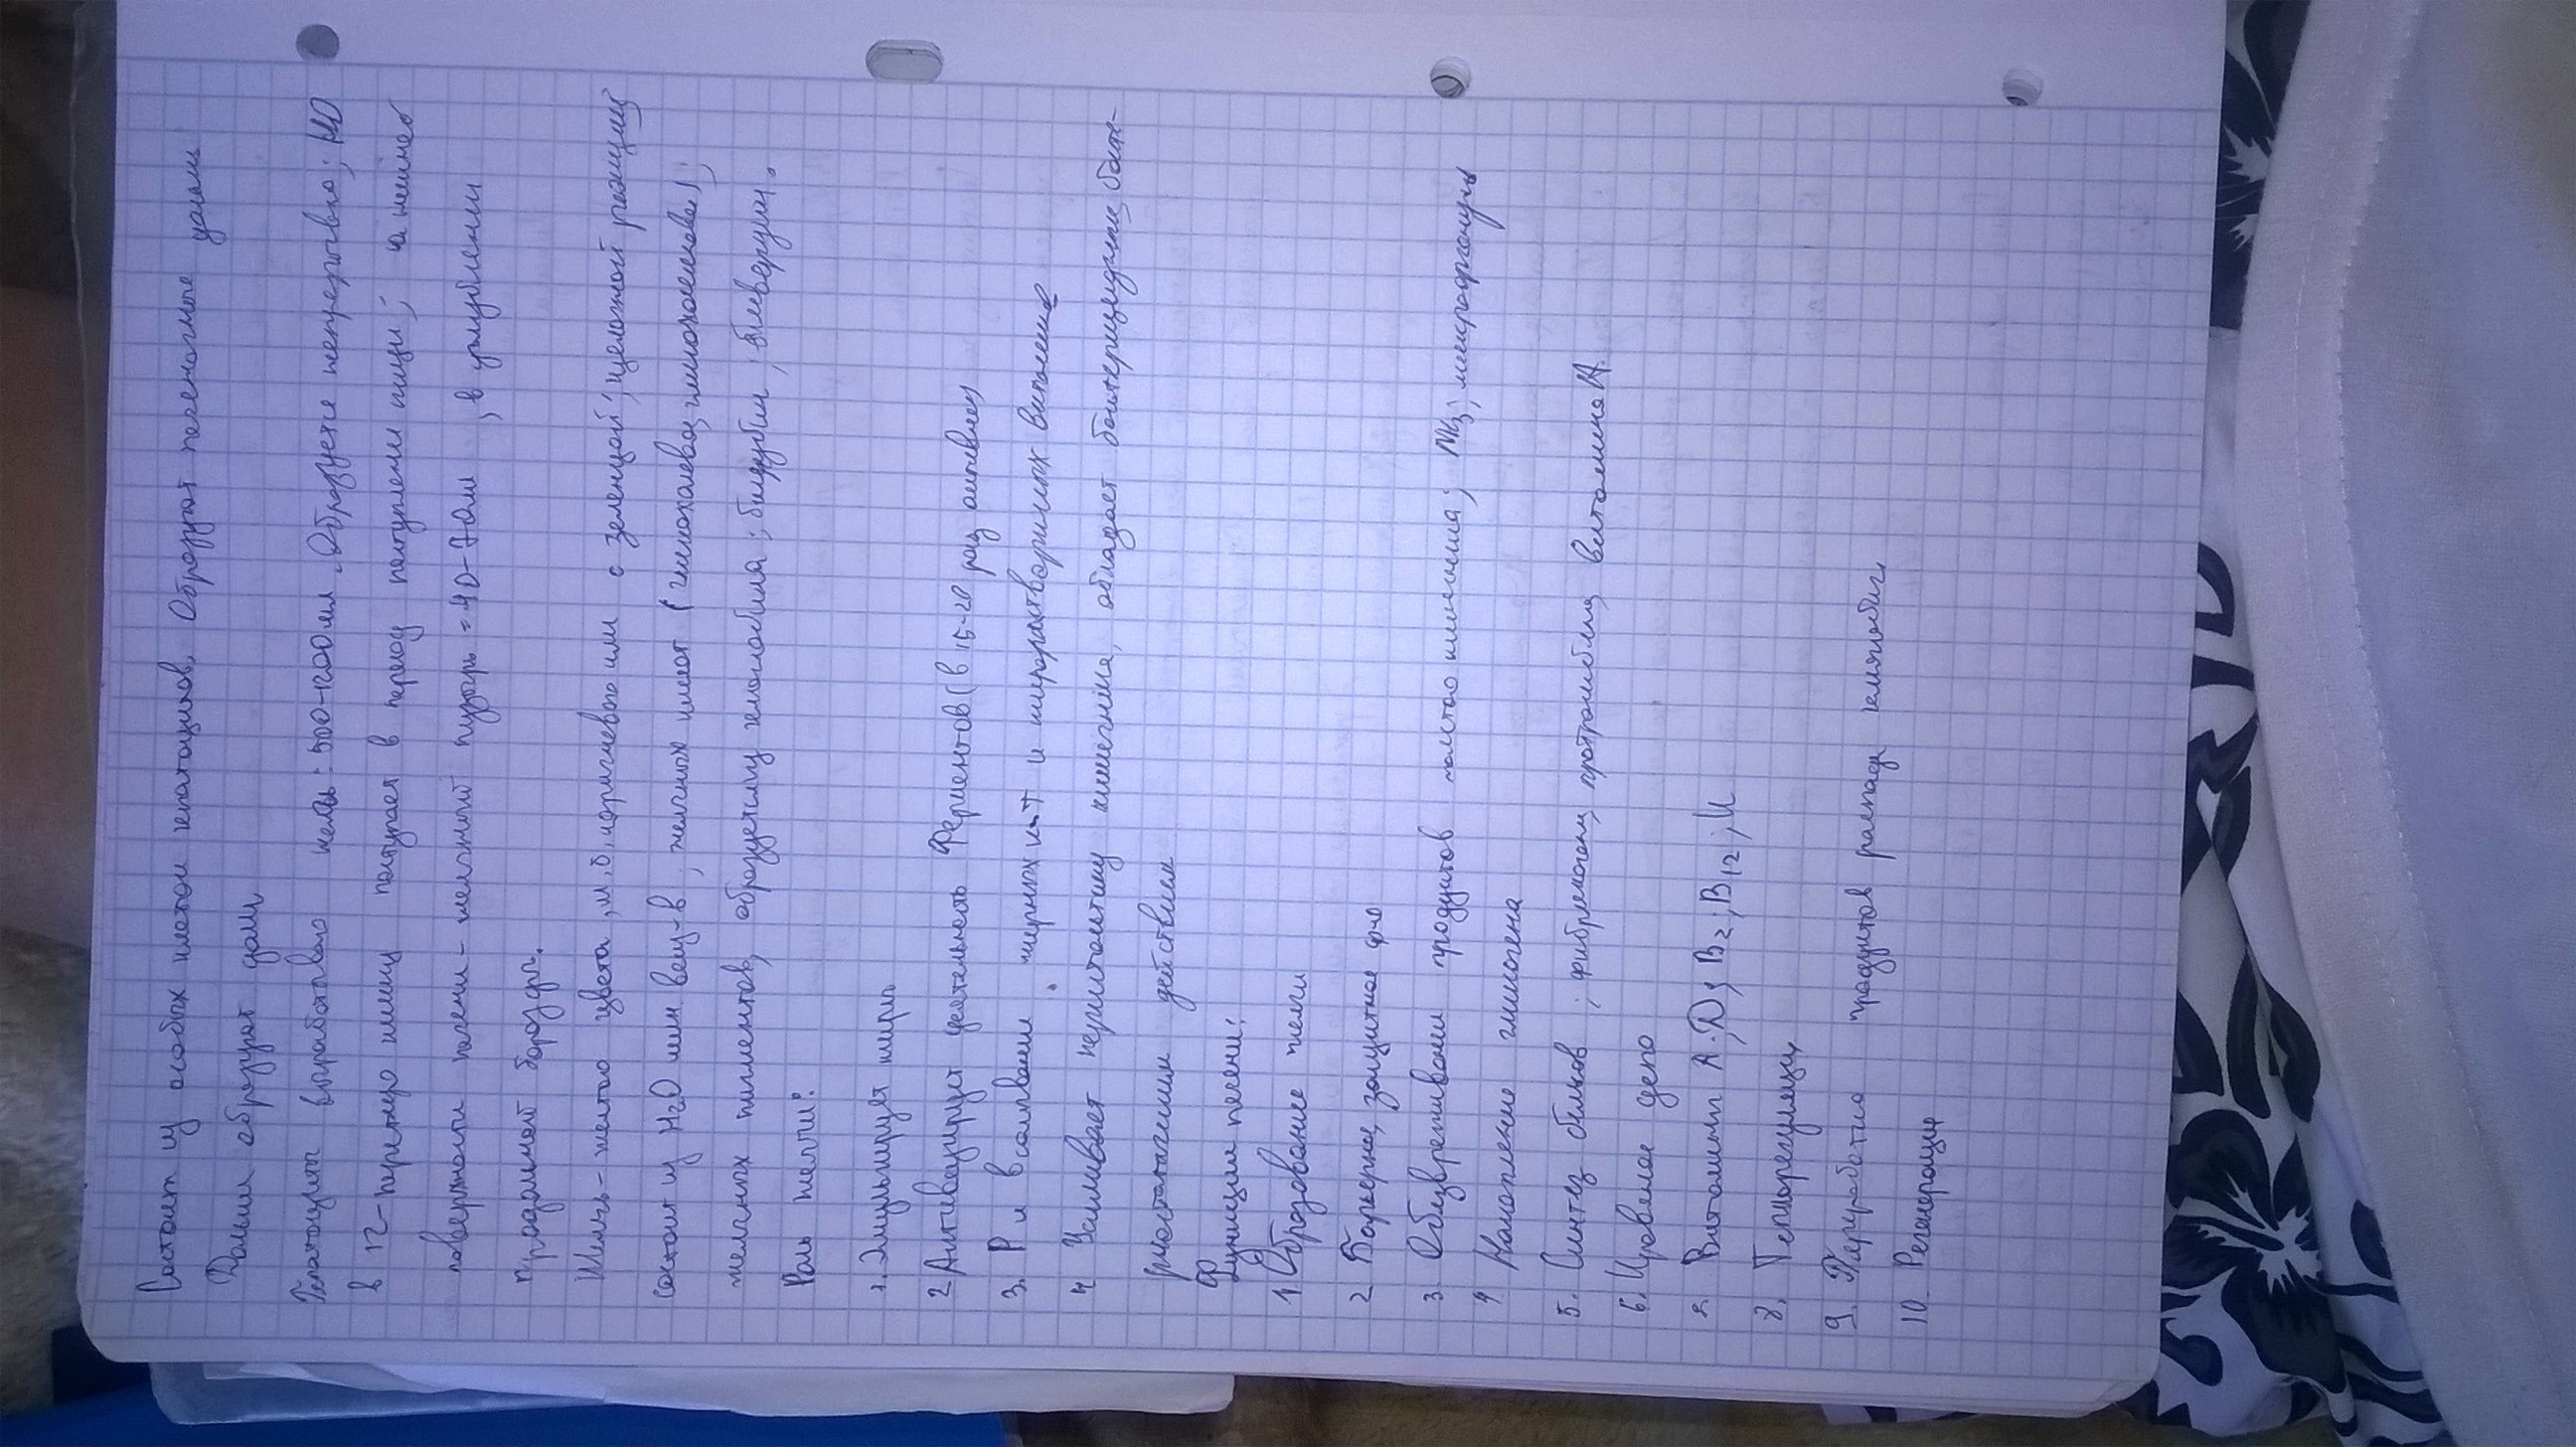 Состоит из особых клеток гепатоцитов. Образуют печеночные дольки
Дольки образуют доли
Гепатоциты выработовало желчь: 500-1200 мл. Образуется непрерывно; НО
в 12-перстную кишку поступает в период поступлени пищи; на нижнеб
поверхности печени - желчный пузырь = 40-70мл , в углублении
продольной борозды.
Желчь - желтого цвета, м.б. коричневого или с зеленцой; щелочной реакции
состоит из H2O мин вещ-в ; желчных кислот (гликохолевая, гликохолиевая);
желчных пигментов, образуется из гемоглобина; билирубин; биливердин.
Роль желчи:
1. Эмульгирует жиры
2 Активизирует деятельность Ферментов (в 15-20 раз активнее)
3. Р и всасывание жирных к-т и жирорастворимых витаминов
4 Усиливает перистальтику кишечника, обладает бактерицидным бакте-
риостатичным действием
Функции печени:
1 Образование желчи
2 Барьерное, защитное ф-ю
3. Обезвреживание продуктов кишечника; NH3; микроорганизмы
4 Накопление гликогена
5. Синтез белков ; фибриноген, протромбин, витамина А.
6. Кровяное депо
7. Витамины А; D; B2; B12; К
8. Терморегуляции
9. Переработка продуктов распада гемоглобин,
10 Регенерация